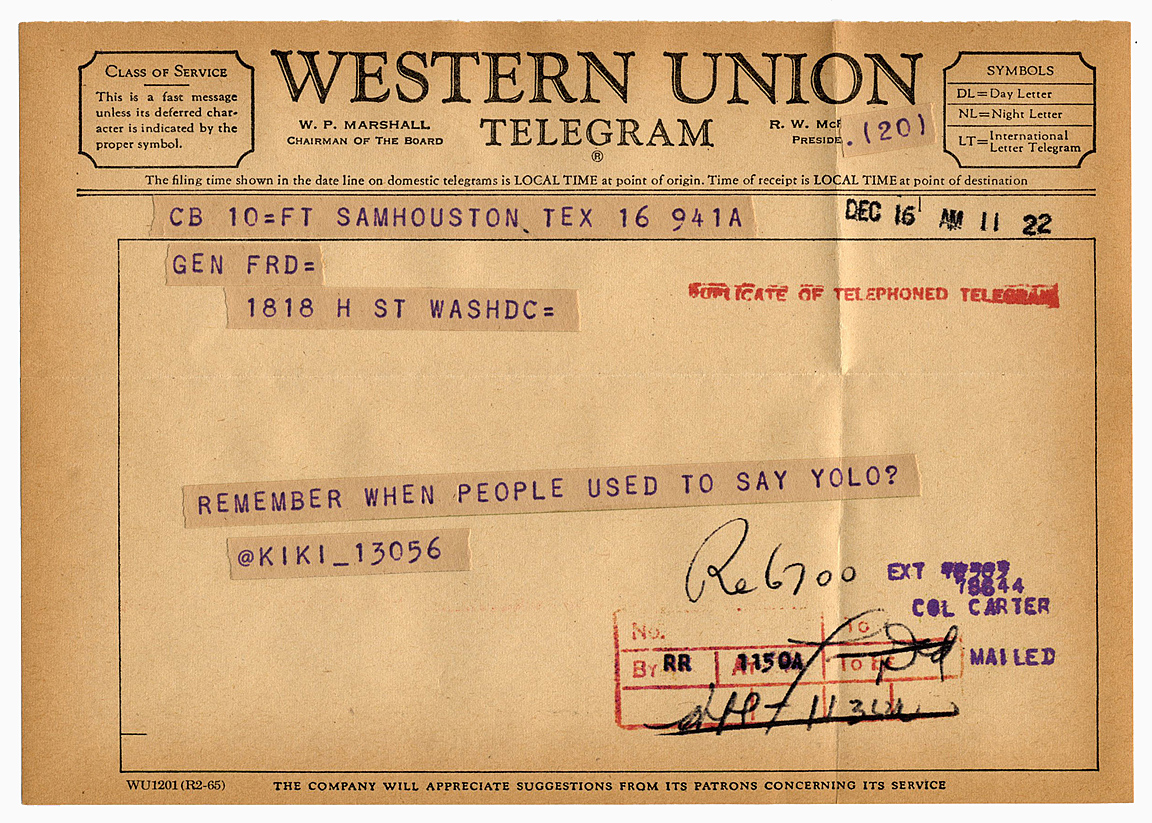 CLASS OF SERVICE
This is a fast message
unless its deferred char-
acter is indicated by the
proper symbol.
WESTERN UNION
TELEGRAM
®
W. P. MARSHALL
CHAIRMAN OF THE BOARD
R. W. McF
PRESIDE
. (20)
SYMBOLS
DL=Day Letter
NL=Night Letter
LT=International Letter Telegram
The filing time shown in the date line on domestic telegrams is LOCAL TIME at point of origin. Time of receipt is LOCAL TIME at point of destination
CB 10=FT SAMHOUSTON TEX 16 941A
DEC 16 AM 11 22
GEN FRD=
1818 H ST WASHDC=
DUPLICATE OF TELEPHONED TELEGRAM
REMEMBER WHEN PEOPLE USED TO SAY YOLO?
@KIKI_13056
Re 6700
EXT
78644
COL CARTER
No.
To
By RR
At 1150A
To be
MAILED
WU1201 (R2-65)
THE COMPANY WILL APPRECIATE SUGGESTIONS FROM ITS PATRONS CONCERNING ITS SERVICE